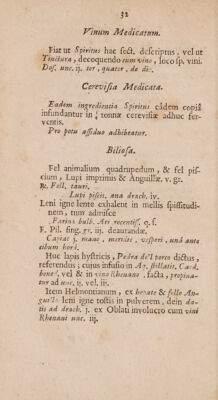 32
Vinum Medicatum.
Fiat ut Spiritus hac sect. descriptus, vel ut
Tinctura, decoquendo cum vino, loco sp. vini.
Dos. unc. ij. ter, quater, de die.
Cerevisia Medicata.
Eadem ingredientia Spiritus eâdem copiâ
infundantur in tonnæ cerevisiæ adhuc fer-
ventis.
Pro potu assiduo adhibeatur.
Biliosa.
Fel animalium quadrupedum, & fel pis-
cium, Lupi imprimis & Anguillæ. v. gr.
℞. Fell. tauri.
Lupi piscis. ana drach. iv.
Leni igne lente exhalent in mellis spissitudi-
nem, tum admisce
Farinæ bulb. Ari recentis. q. s.
F. Pil. sing. gr. iij. deaurandæ.
Capiat 3. mane, meridie, vesperi, und ante
cibum horâ.
Huc lapis hystricis, Pedra de'l porco dictus,
referendus; cujus infusio in Aq. stillatit. Card.
bened. vel & in vino Rhenano, facta, propina-
tur ad unc. ij. vel. iij.
Item Helmontianum, ex hepate & felle An-
guillæ leni igne tostis in pulverem, dein da-
tis ad drach. j. ex Oblati involucro cum vini
Rhenani unc. iij.